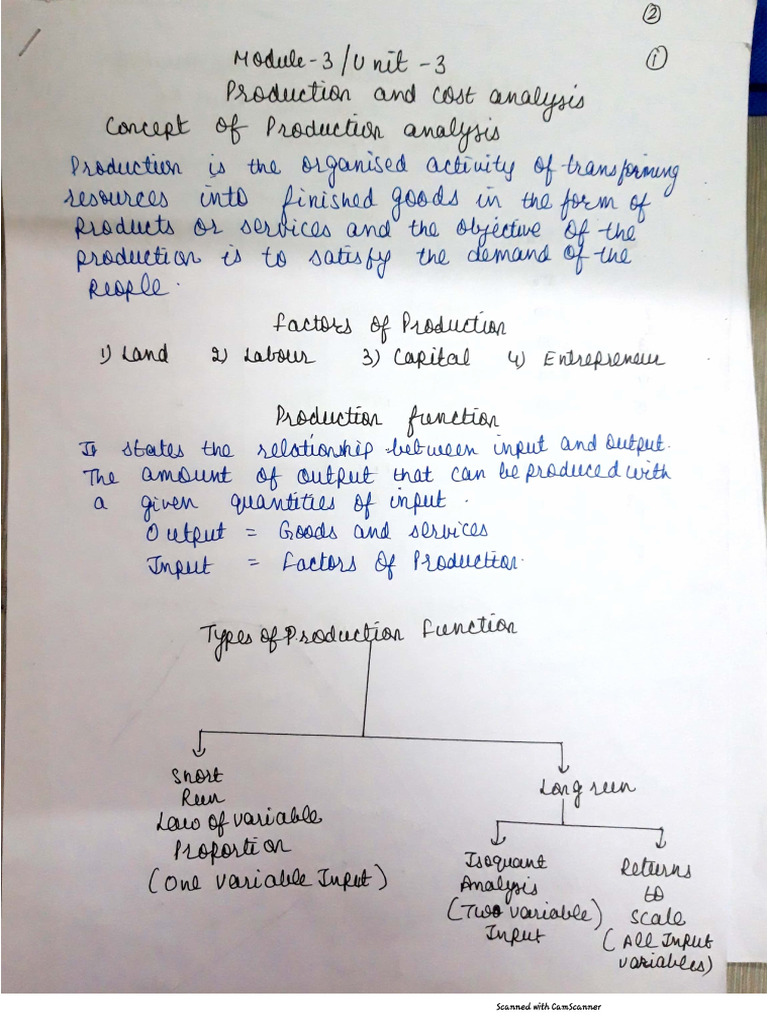 2
Module-3/Unit -3
1
Production and cost analysis
Concept of Production analysis
Production is the organised activity of transforming
resources into finished goods in the form of
Products or services and the objective of the
production is to satisfy the demand of the
People.
Factors of Production
1) Land 2) Labour 3) Capital 4) Entrepreneur
Production function
It states the relationship between input and output.
The amount of output that can be produced with
a given quantities of input.
Output = Goods and services
Input = Factors of Production.
Types of Production Function
Short
Run
Law of variable
Proportion
(One variable Input)
Long run
Isoquant
Analysis
(Two variable)
Input
Returns
to
Scale
(All Input
variables)
Scanned with CamScanner